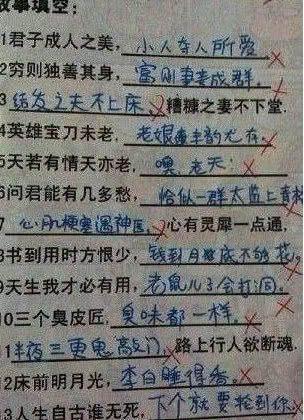 故事填空：
1君子成人之美，小人夺人所爱
2穷则独善其身，富则妻妾成群。
3结发之夫不上床，糟糠之妻不下堂.
4英雄宝刀未老，老娘丰韵尤存.
5天若有情天亦老，噢，老天！
6问君能有几多愁，恰似一群太监上青
7心肌梗塞遇神医，心有灵犀一点通，
8书到用时方恨少，钱到月底不够花，
9天生我才必有用，老鼠儿子会打洞。
10三个臭皮匠，臭味都一样。
11半夜三更鬼敲门，路上行人欲断魂.
12床前明月光，李白睡得香。
13人生自古谁无死，下个就要轮到你